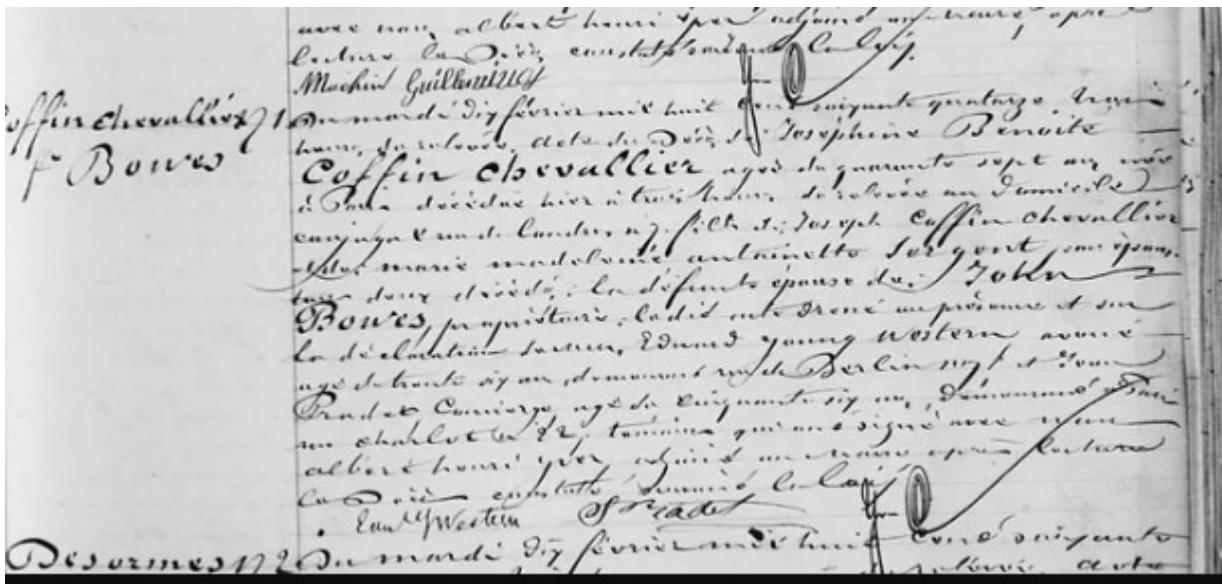 avec nous, albert henri yver adjoint au maire, après
lecture le Décès constaté suivant la loi.
Machin Guillemin
Coffin Chevallier 71
fe Bowes
Du mardi dix février mil huit cent soixante quatorze, trois
heures de relevée, acte de Décès de Joséphine Benoîte
Coffin Chevallier agée de quarante sept ans née
à Paris décédée hier à trois heures de relevée au Domicile
conjugal rue de Londres 7. fille de Joseph Coffin Chevallier
et de marie madeleine antoinette Sergent, son épouse
tous deux décédés; la défunte épouse de John
Bowes, propriétaire. ledit acte dressé en présence et sur
la déclaration de Edward young Western avoué
agé de trente six ans, demeurant rue de Berlin et
Pradet Concierge, agé de cinquante six ans, Demeurant à Paris
rue charlot 22, témoins qui ont signé avec nous
albert henri yver adjoint au maire après lecture
le Décès constaté suivant la loi
Edwd Y Western Pradet
Desormes 172
Du mardi dix février mil huit cent soixante
relevée, acte